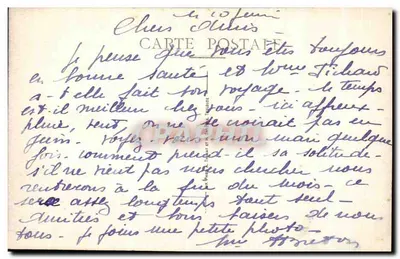 le 10 juin
Chers Amis
CARTE POSTALE
Je pense que vous êtes toujours
en bonne santé et Mme Richard
a-t-elle fait son voyage - le temps
est-il meilleur chez vous - ici affreux -
pluie, vent, on ne se croirait pas en
juin - voyez-vous mon mari quelque
fois - comment prend-il sa solitude -
s'il ne vient pas nous chercher nous
rentrerons à la fin du mois - ce
sera assez longtemps tout seul -
Amitiés et bons baisers de nous
tous - Je joins une petite photo -